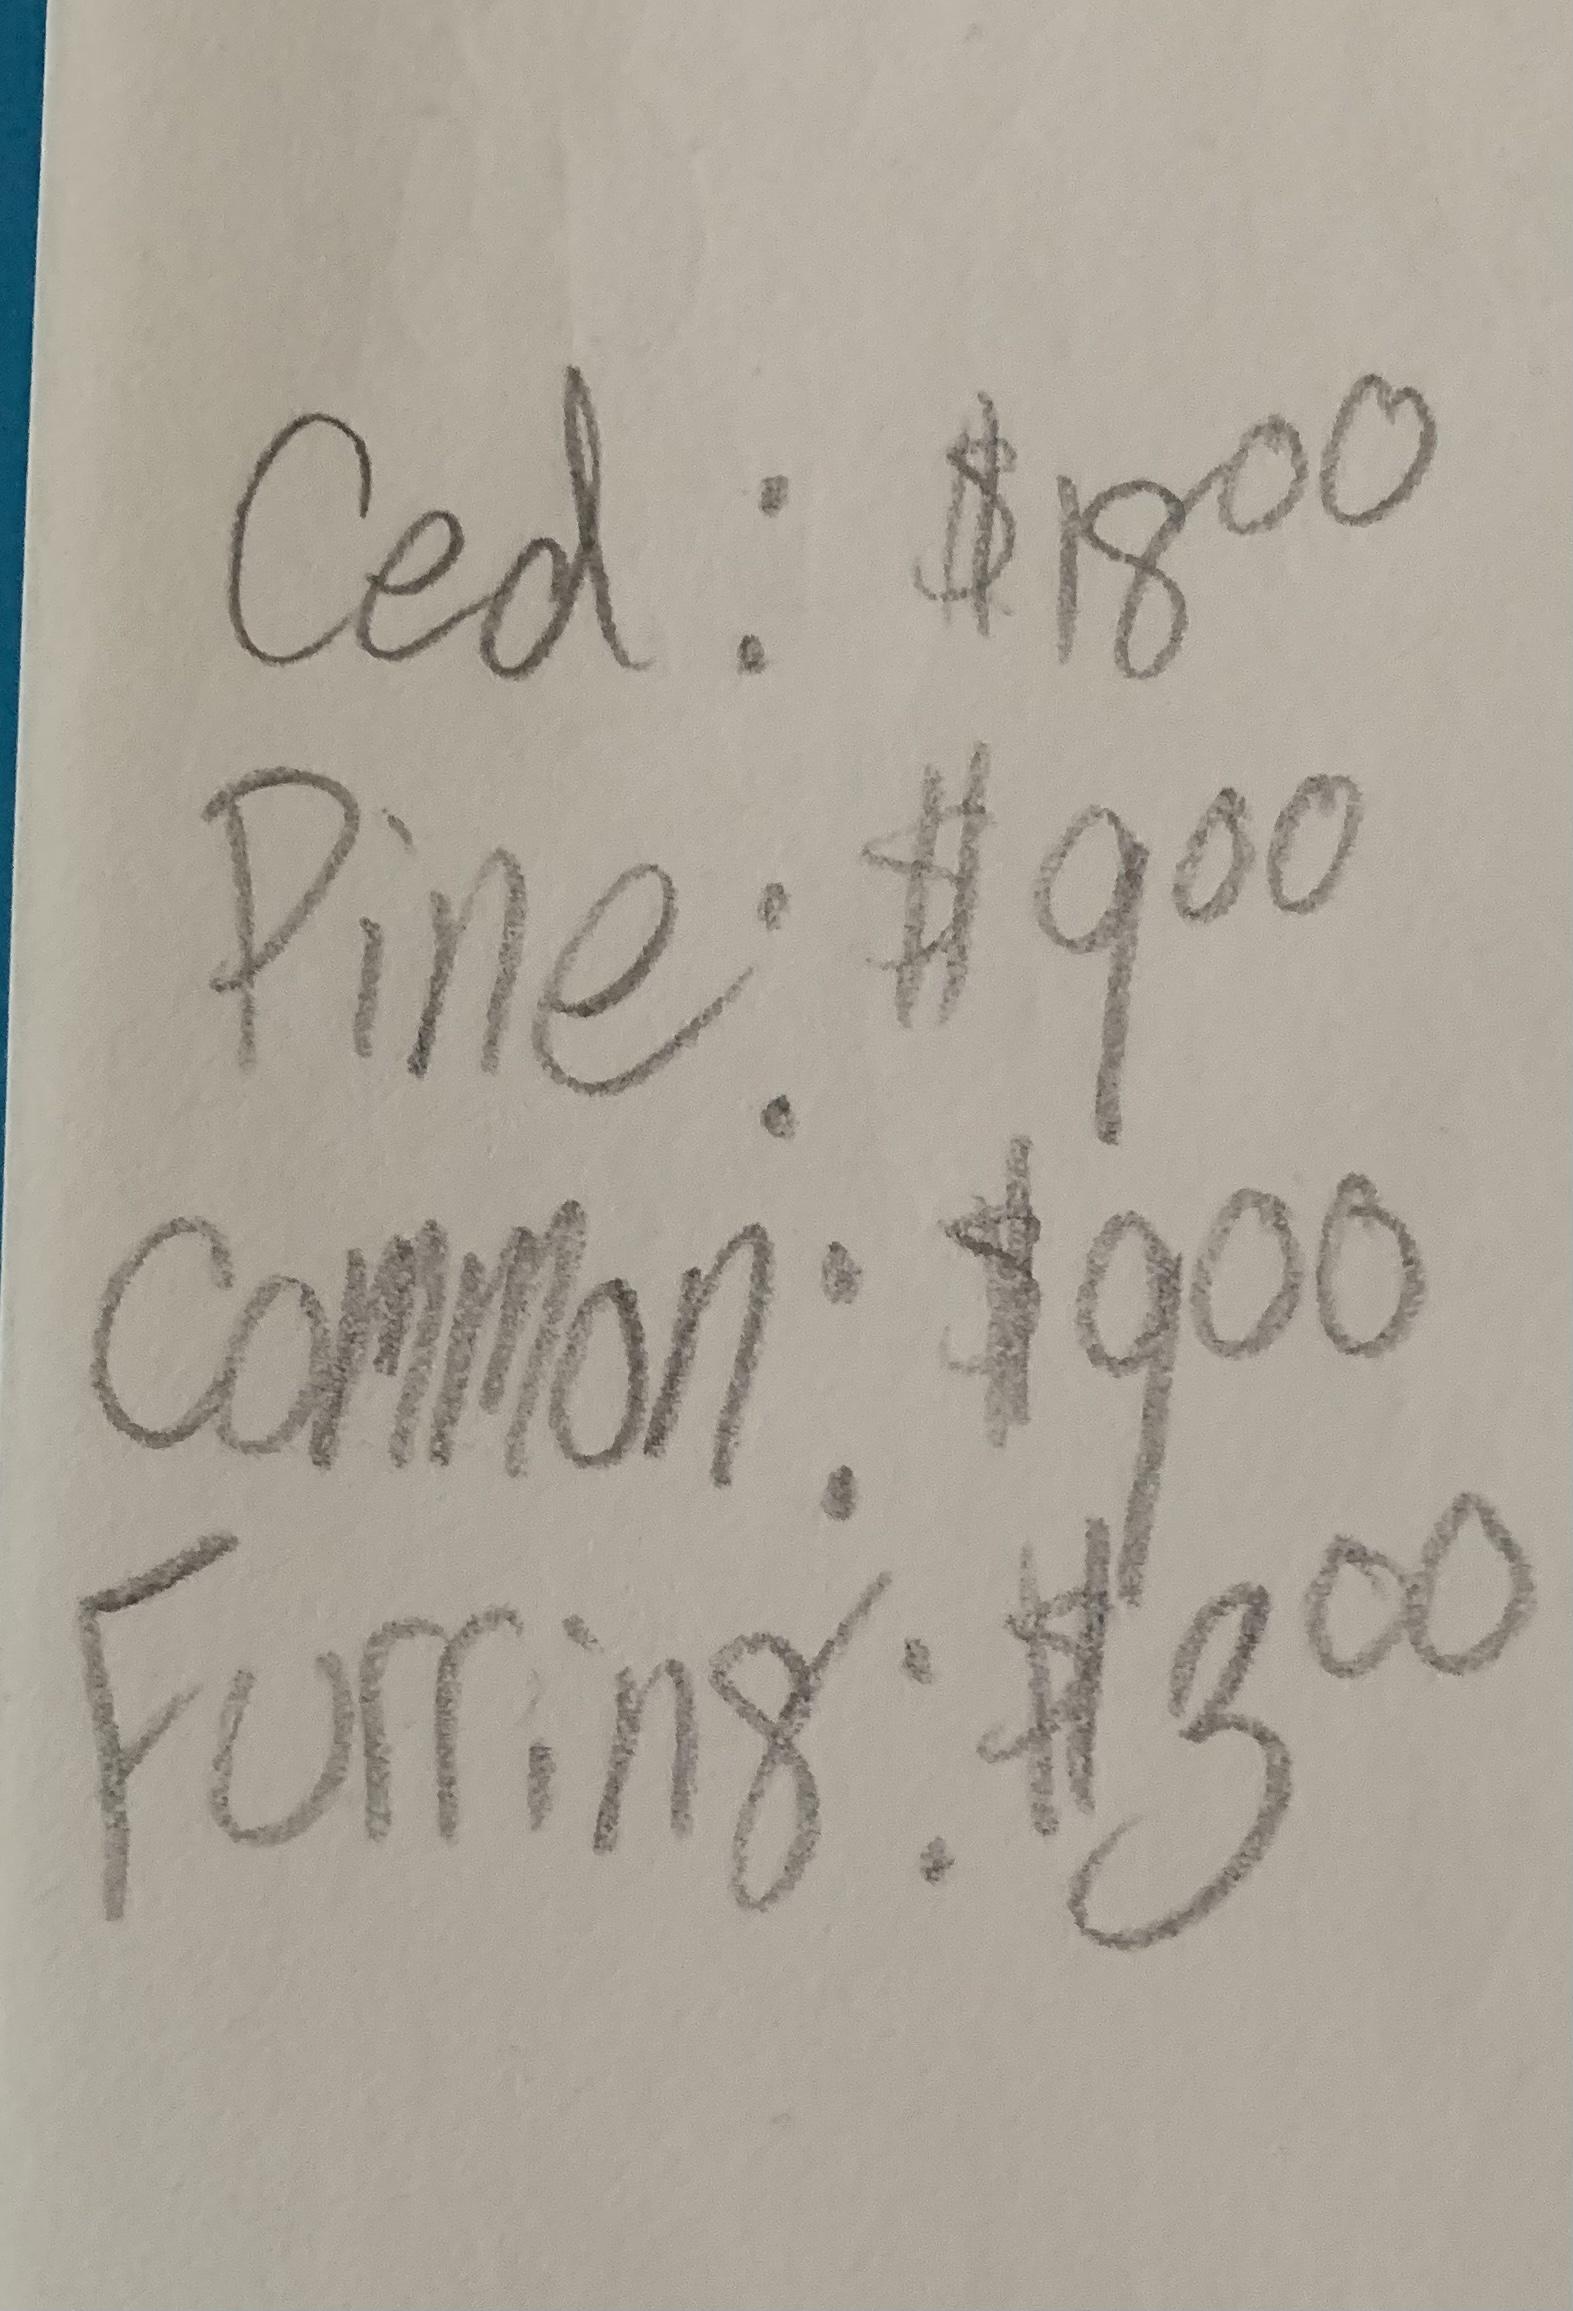 Ced: $1800
Pine: $900
Common: $900
Furring: $300